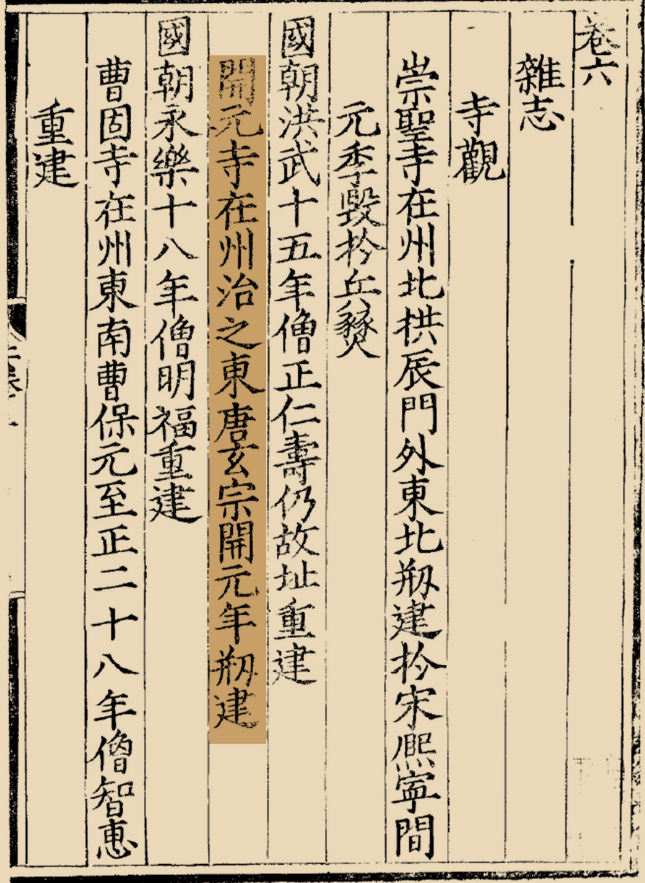 卷六
雜志
寺觀
崇聖寺在州北拱辰門外東北剏建扵宋熈寧間
元季毀扵兵燹
國朝洪武十五年僧正仁壽仍故址重建
開元寺在州治之東唐玄宗開元年剏建
國朝永樂十八年僧明福重建
曹固寺在州東南曹保元至正二十八年僧智惠
重建